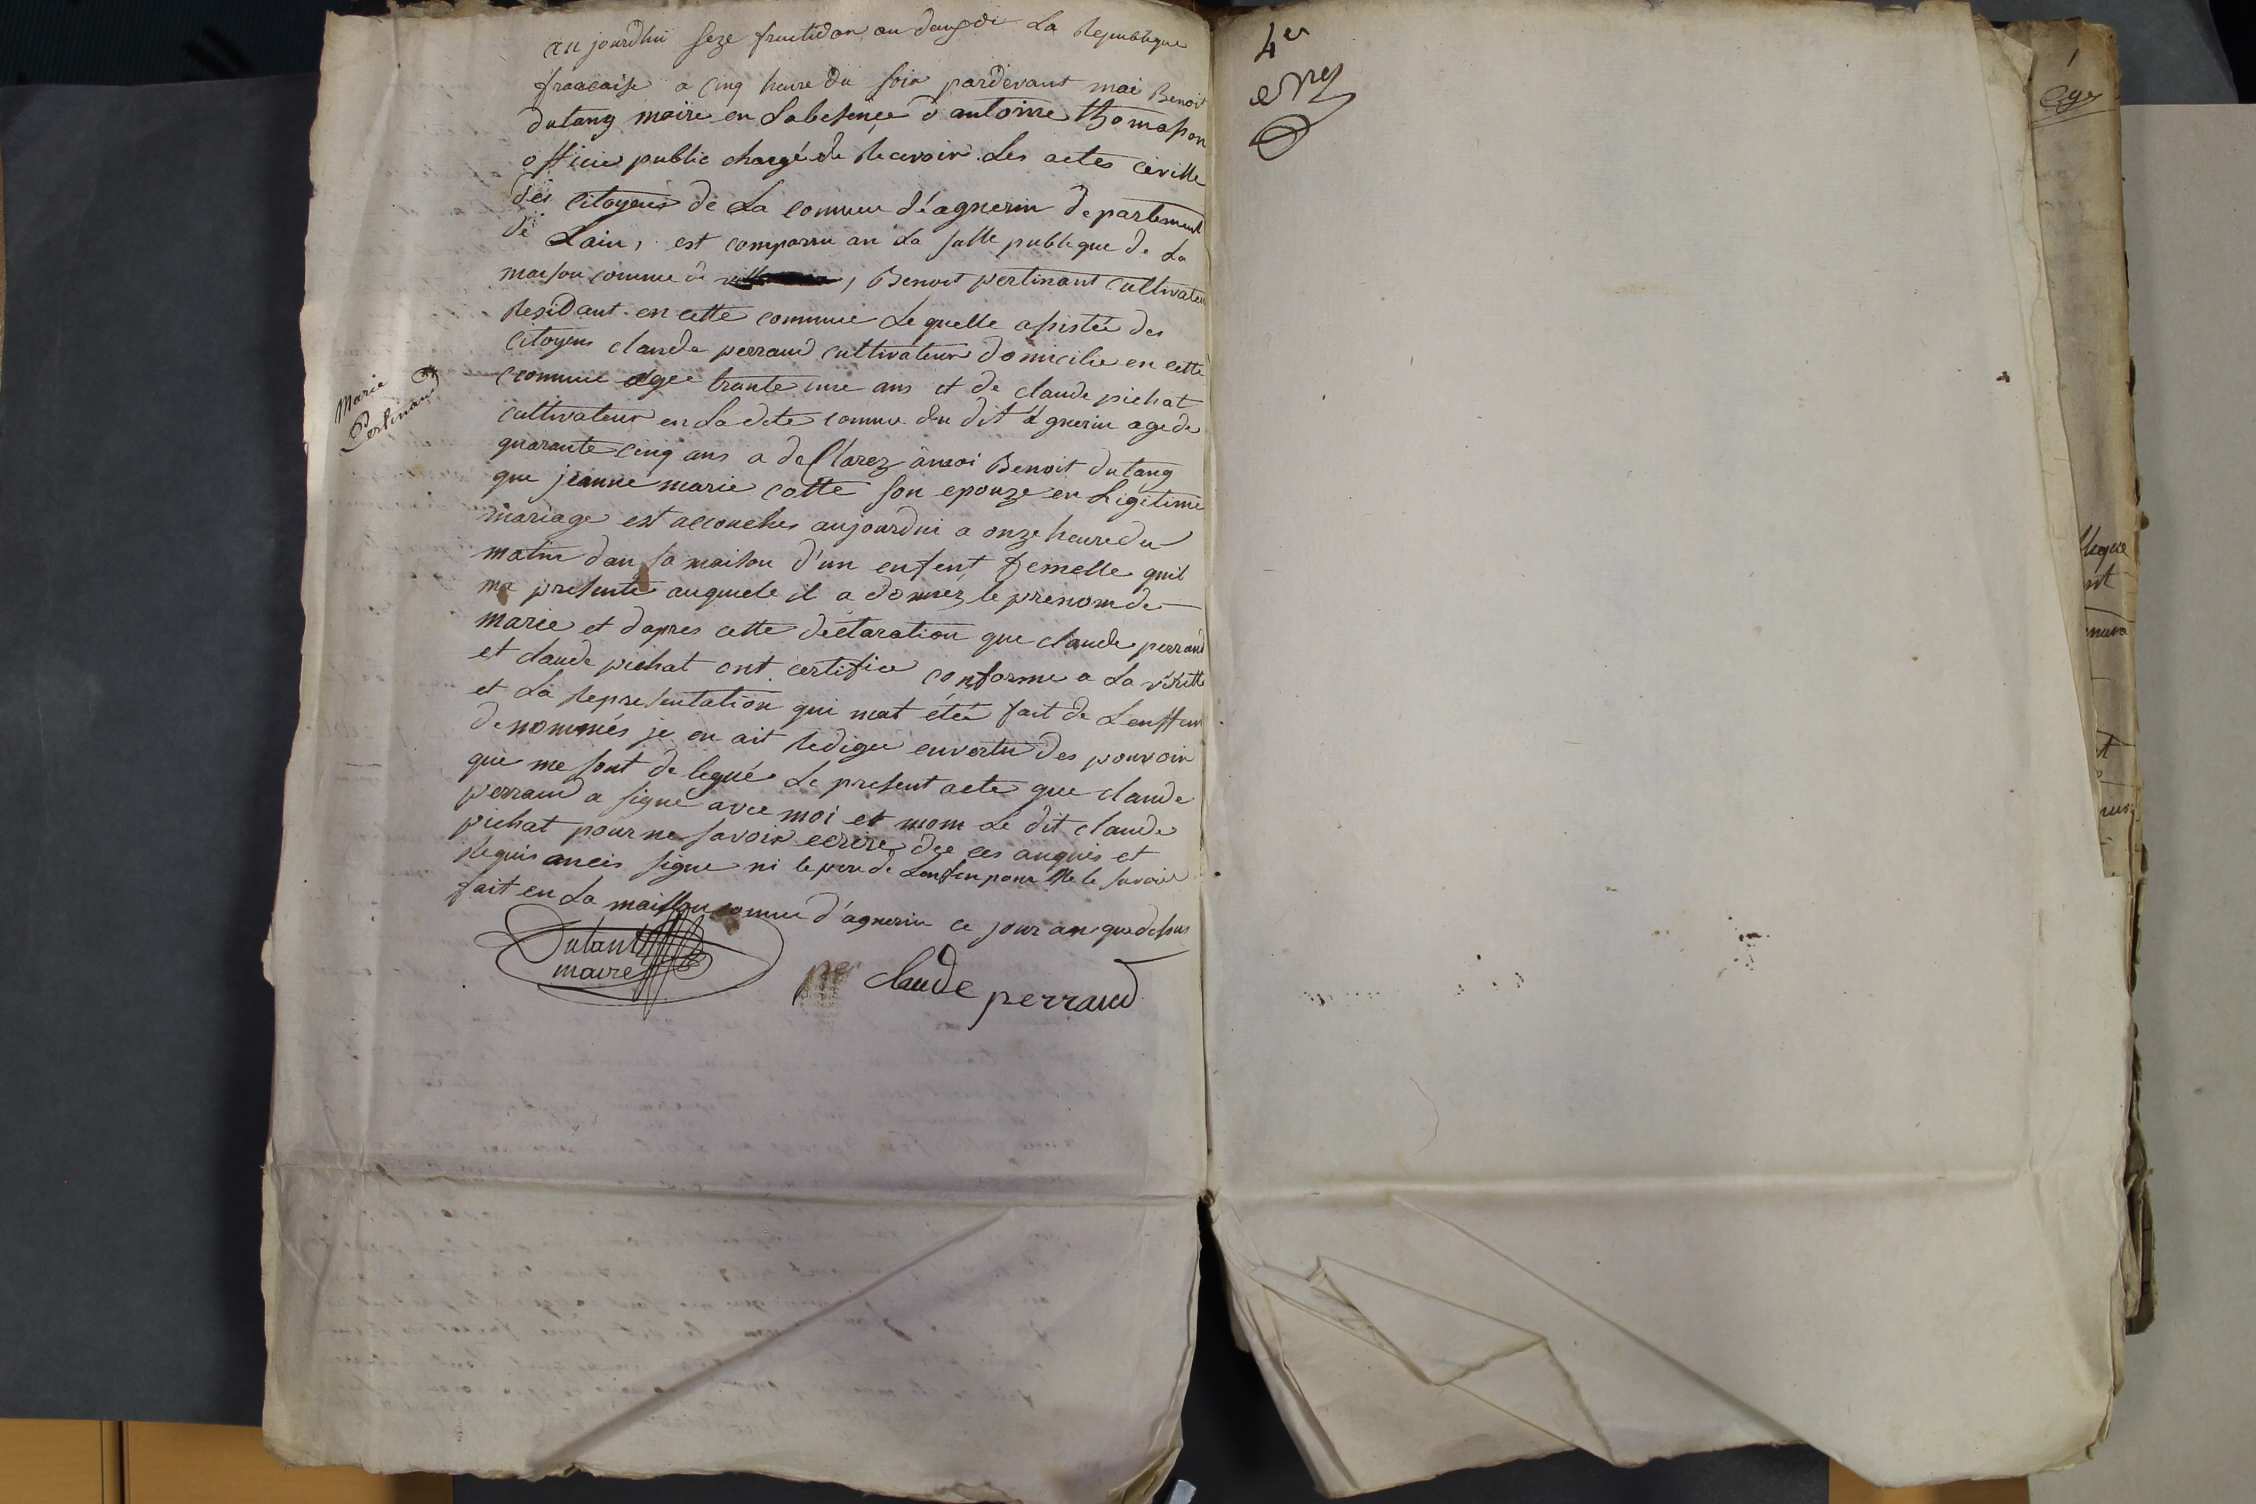 au jourdhui seze fructidor an douze de La Republique
francaise a Cinq heure du soir pardevant moi Benoit
dutang maire en Labesence d'antoine thomasson
officie public chargé de Recevoir Les actes civille
des Citoyens de La comune d'agnerin departement
de Lain, est comparru an La salle publique de La
maison comune de , Benoit pertinant Cultivateur
Residant en cette commune Lequelle assistée des
Citoyens claude perraud cultivateur domicilie en cette
commune agee trante une ans et de claude pichat
cultivateur en La dite comune du dit agnerin age de
quarante cinq ans a de Clarez à moi Benoit dutang
que jeanne marie cotte son epouze en Legitime
mariage est accouches aujourdui a onze heure du
matin dan sa maison d'un enfent femelle quil
ma presente auquele il a donnez le prenom de
marie et dapres cette declaration que claude perraud
et claude pichat ont certifiée conforme a La veritte
et La Representation qui mat étée fait de Lenffan
denommés je en ait Redigee envertu des pouvoir
que me sont delegué Le present acte que claude
perraud a signe avec moi et nom Le dit claude
pichat pour ne savoir ecrire de ces anquis et
Requis signe ni le per de Lenfen pour Ne le savoir
fait en La maison comune d'agnerin ce jour an que dessus
Dutant
maire
per claude perraud
Marie
Pertinand
4er